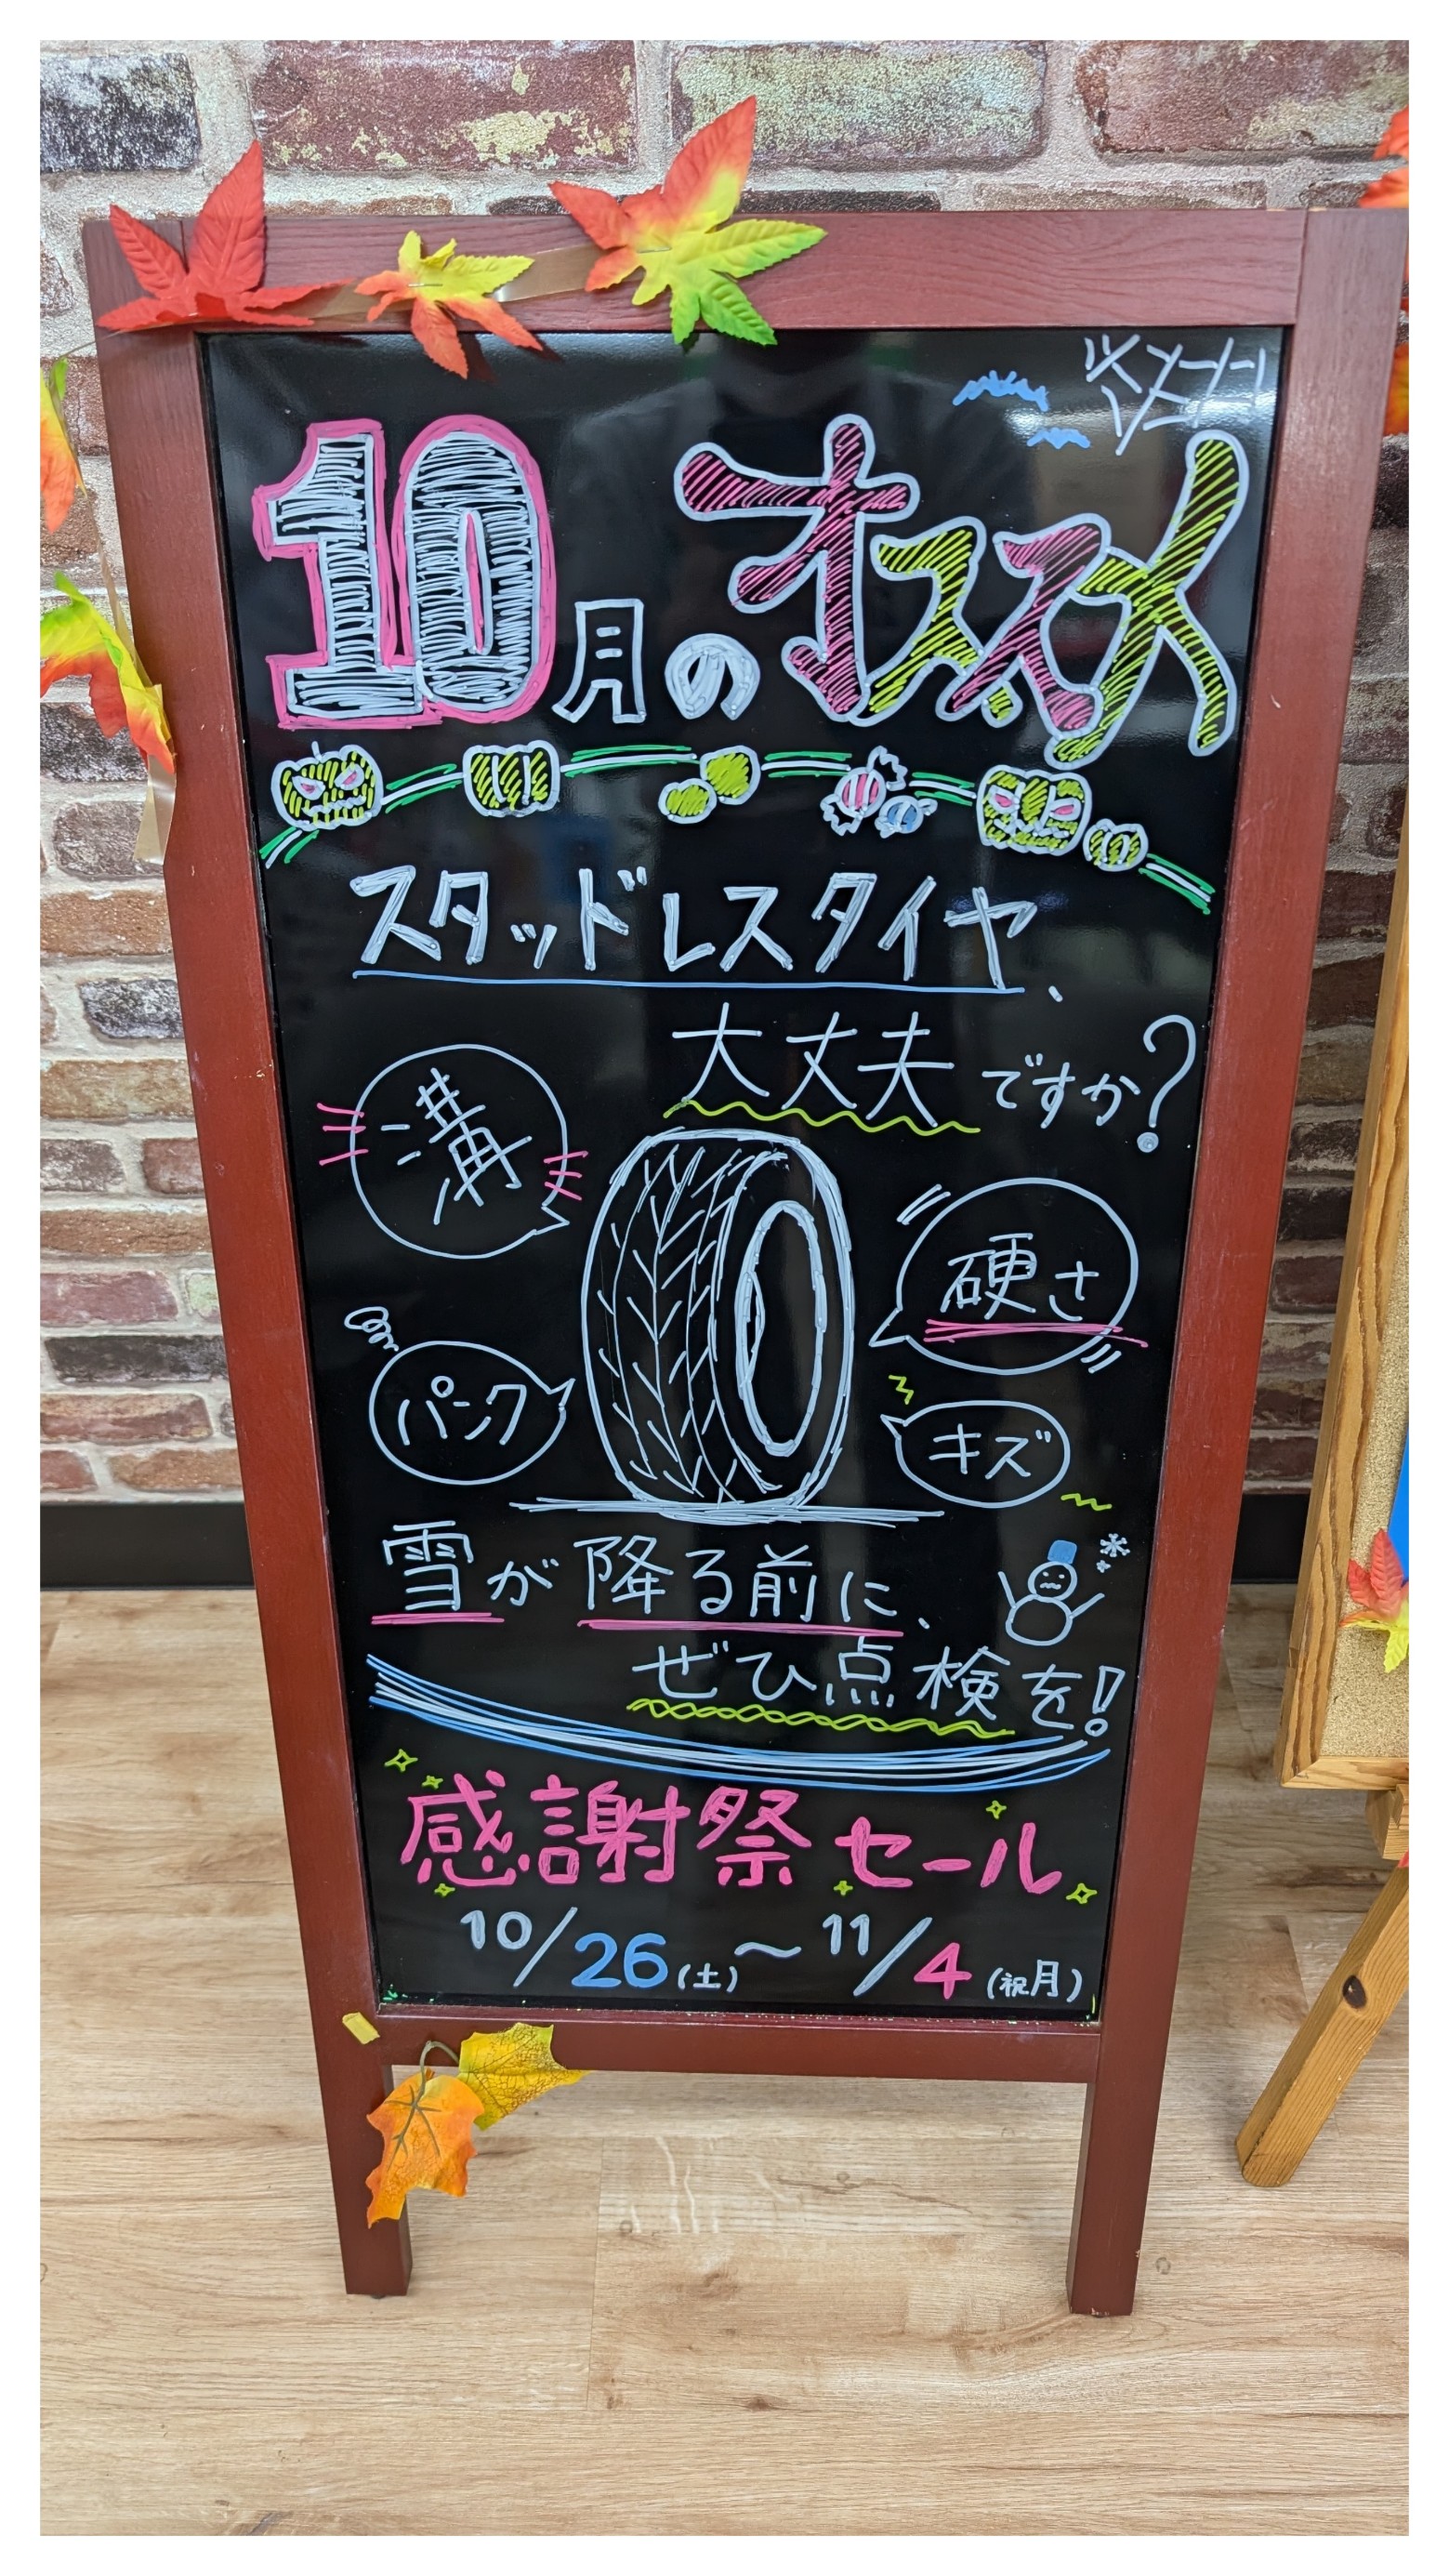 10月のオススメ
スタッドレスタイヤ、
大丈夫ですか?
溝
硬さ
パンク
キズ
雪が降る前に、
ぜひ点検を!
感謝祭セール
10/26(土)〜11/4(祝月)